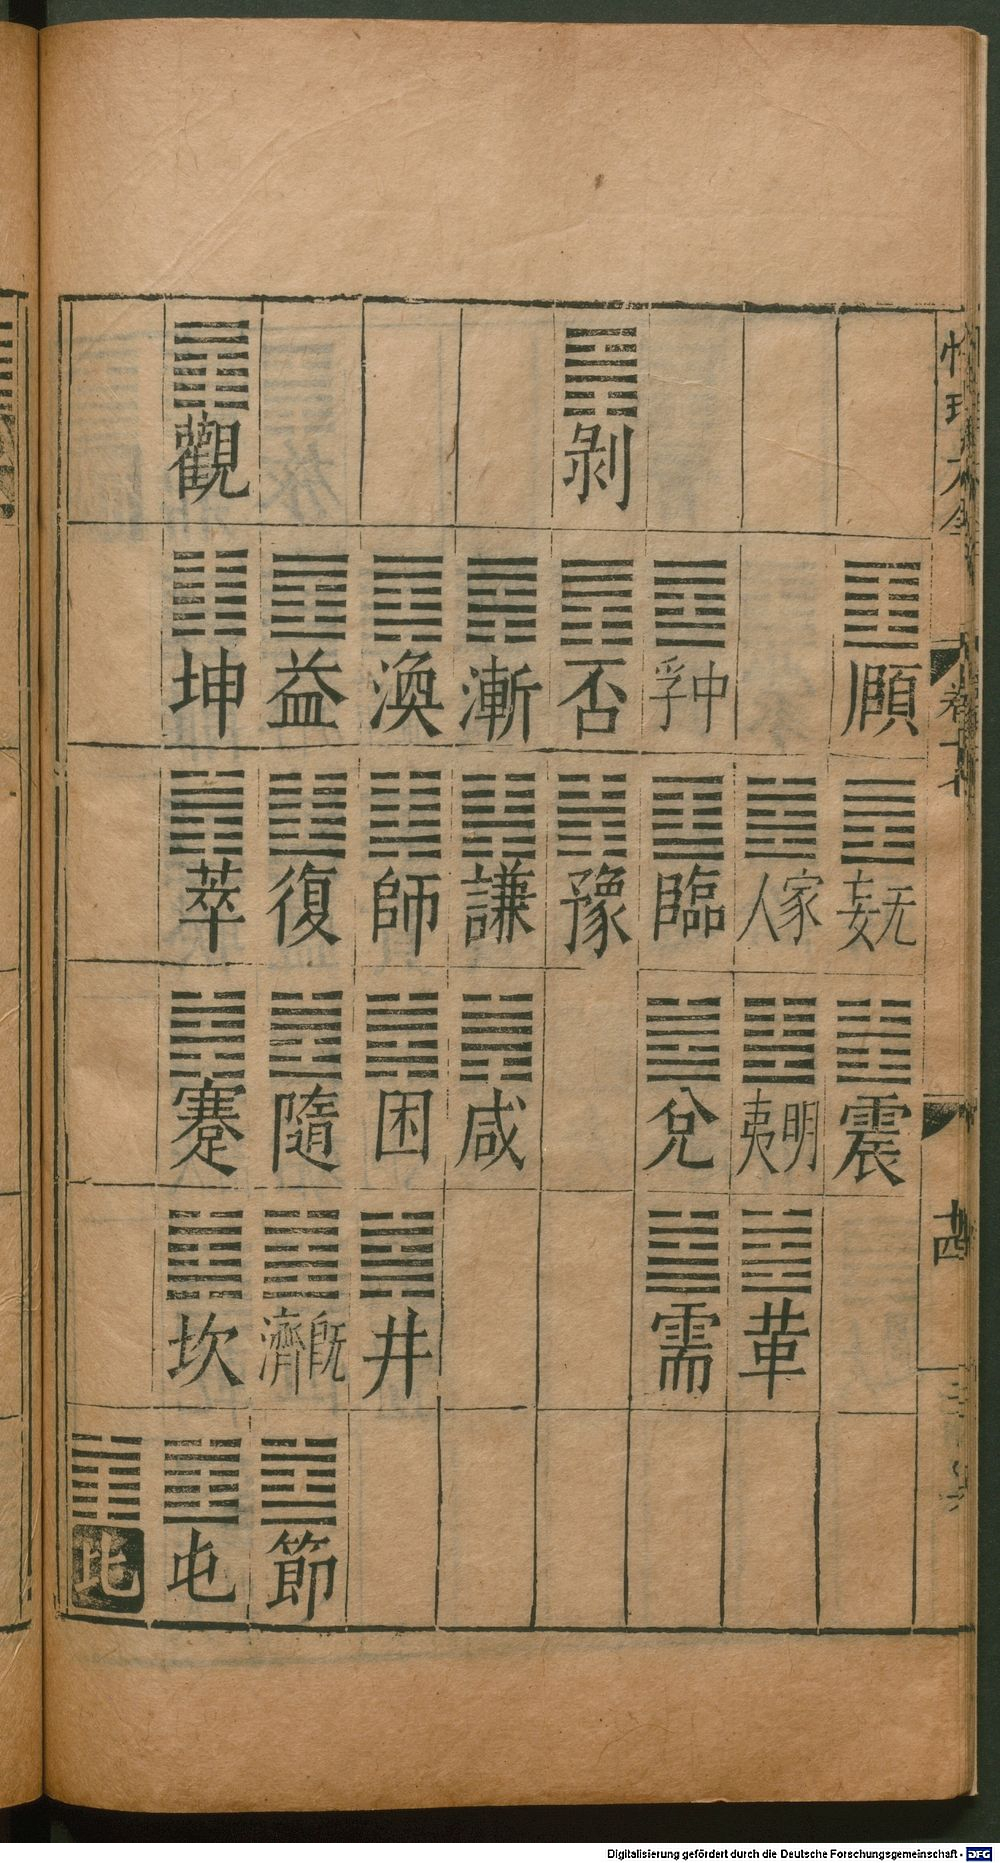 性理大全
卷十七
十四
頤
无妄
震
家人
明夷
革
中孚
臨
兌
需
剝
否
豫
漸
謙
咸
渙
師
困
井
益
復
隨
既濟
節
觀
坤
萃
蹇
坎
屯
比
Digitalisierung gefördert durch die Deutsche Forschungsgemeinschaft - DFG